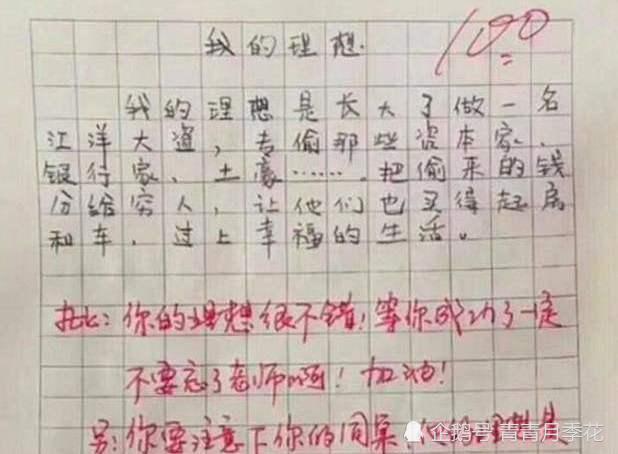 我的理想.
100
我的理想是长大了做一名
江洋大盗，专偷那些资本家、
银行家、土豪……，把偷来的钱
分给穷人，让他们也买得起房
和车，过上幸福的生活。
批：你的理想很不错！等你成功了一定
不要忘了老师啊！加油！
另：你要注意下你的同桌，他的理想是
企鹅号 青青月季花